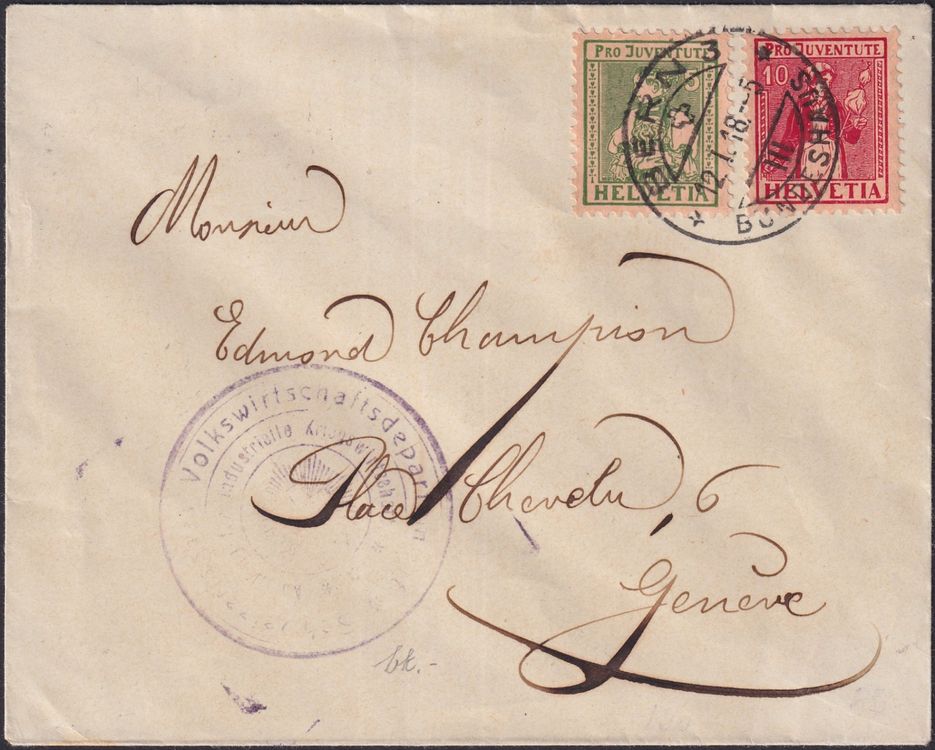 PRO JUVENTUTE
HELVETIA
PRO JUVENTUTE
10
HELVETIA
BERN 3
12.I.18.-5
VIII
BUNDESHAUS
Monsieur
Edmond Champion
Place Chevelu, 6
Genève
Volkswirtschaftsdepartement
Industrielle Kriegswirtschaft